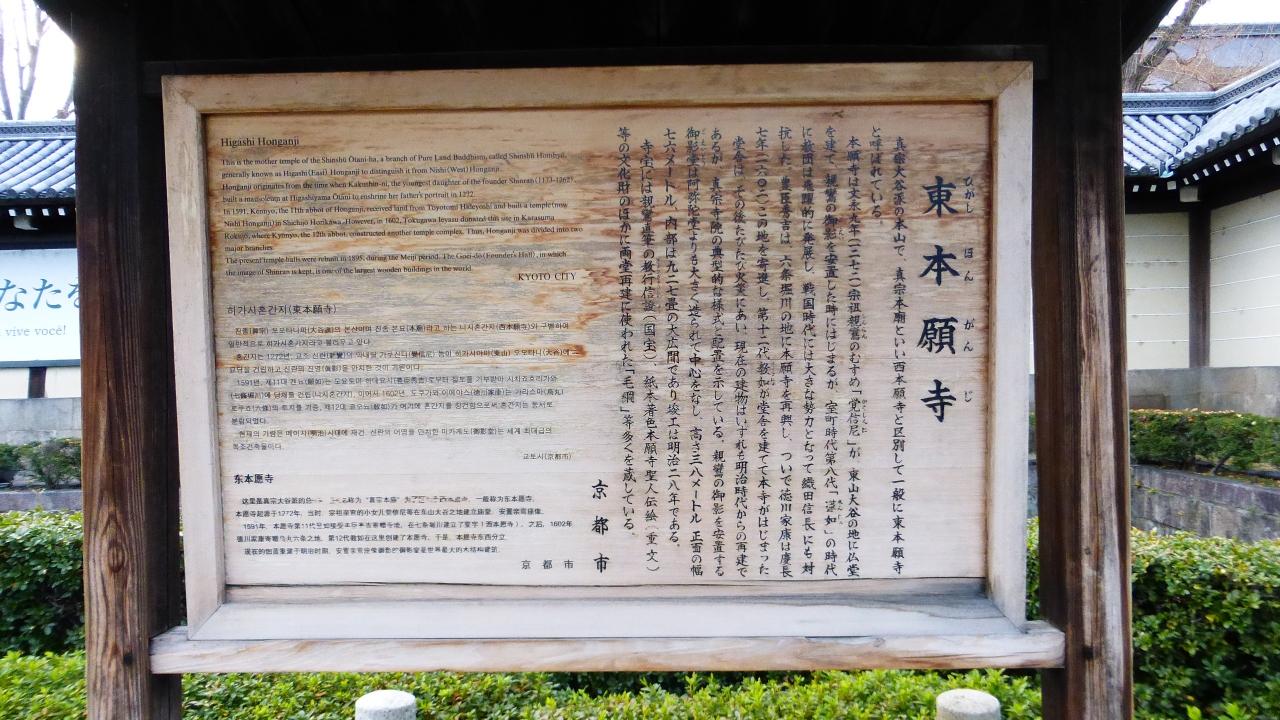 東本願寺
ひがし ほん がん じ
真宗大谷派の本山で、真宗本廟といい西本願寺と区別して一般に東本願寺
と呼ばれている。
本願寺は文永九年(一二七二)宗祖親鸞のむすめ「覚信尼」が、東山大谷の地に仏堂
を建て、親鸞の御影を安置した時にはじまるが、室町時代第八代「蓮如」の時代
に教団は飛躍的に発展し、戦国時代には大きな勢力となって織田信長にも対
抗した。豊臣秀吉は、六条堀川の地に本願寺を再興し、ついで徳川家康は慶長
七年(一六〇二)この地を寄進し、第十二代教如が堂舎を建てて本寺がはじまった
堂舎は、その後たびたび火災にあい、現在の建物はいずれも明治時代からの再建で
あるが、真宗寺院の典型的な様式と配置を示している。親鸞の御影を安置する
御影堂は阿弥陀堂よりも大きく造られて中心をなし、高さ三八メートル 正面の幅
七六メートル、内部は九二七畳の大広間であり竣工は明治二八年である。
寺宝には親鸞直筆の教行信証(国宝)、紙本著色本願寺聖人伝絵(重文)
等の文化財のほかに両堂再建に使われた「毛綱」等多くを蔵している。
京都市
Higashi Honganji
This is the mother temple of the Shinshū Ōtani-ha, a branch of Pure Land Buddhism, called Shinshū Hombyō,
generally known as Higashi(East) Honganji to distinguish it from Nishi(West) Honganji.
Honganji originates from the time when Kakushin-ni, the youngest daughter of the founder Shinran (1173-1262),
built a mausoleum at Higashiyama Ōtani to enshrine her father's portrait in 1272.
In 1591, Kennyo, the 11th abbot of Honganji, received land from Toyotomi Hideyoshi and built a temple(now
Nishi Honganji) in Shichijō Horikawa. However, in 1602, Tokugawa Ieyasu donated this site in Karasuma
Rokujō, where Kyōnyo, the 12th abbot, constructed another temple complex. Thus, Honganji was divided into two
major branches.
The present temple halls were rebuilt in 1895, during the Meiji period. The Goei-dō (Founder's Hall), in which
the image of Shinran is kept, is one of the largest wooden buildings in the world.
KYOTO CITY
히가시혼간지(東本願寺)
진종(眞宗) 오오타니파(大谷派)의 본산이며 진종 본묘(本廟)라고 하는 니시혼간지(西本願寺)와 구별하여
일반적으로 히가시혼간지라고 불리우고 있다.
혼간지는 1272년, 교조 신란(親鸞)의 막내딸 가쿠신니(覺信尼) 등이 히가시야마(東山) 오오타니(大谷)에
묘당을 건립하고 신란의 진영(眞影)을 안치한 것이 기원이다.
1591년, 제11대 켄뇨(顯如)는 도요토미 히데요시(豊臣秀吉)로부터 절토를 기부받아 시치죠호리가와
(七條堀川)에 당체를 건립(니시혼간지), 이어서 1602년, 도쿠가와 이에야스(德川家康)는 가라스마(烏丸)
로쿠죠(六條)의 토지를 기증, 제12대 쿄오뇨(敎如)가 여기에 혼간지를 창건함으로써 혼간지는 동서로
분립되었다.
현재의 가람은 메이지(明治)시대에 재건. 신란의 어영을 안치한 미카게도(御影堂)는 세계 최대급의
목조건축물이다.
교토시(京都市)
东本愿寺
这里是真宗大谷派的总 称为“真宗本庙” 一般称为东本愿寺。
本愿寺起源于1272年，当时，宗祖亲鸾的小女儿觉信尼等在东山大谷之地建立庙堂，安置亲鸾庙像。
1591年，本愿寺第11代 在七条堀川建立了堂宇（西本愿寺）。之后，1602年
德川家康寄赠乌丸六条之地，第12代教如在这里创建了本愿寺，于是，本愿寺东西分立。
现在的伽蓝重建于明治时期，安置亲鸾座像御影的御影堂是世界最大的木结构建筑。
京都市
なたを
vivre vocé!